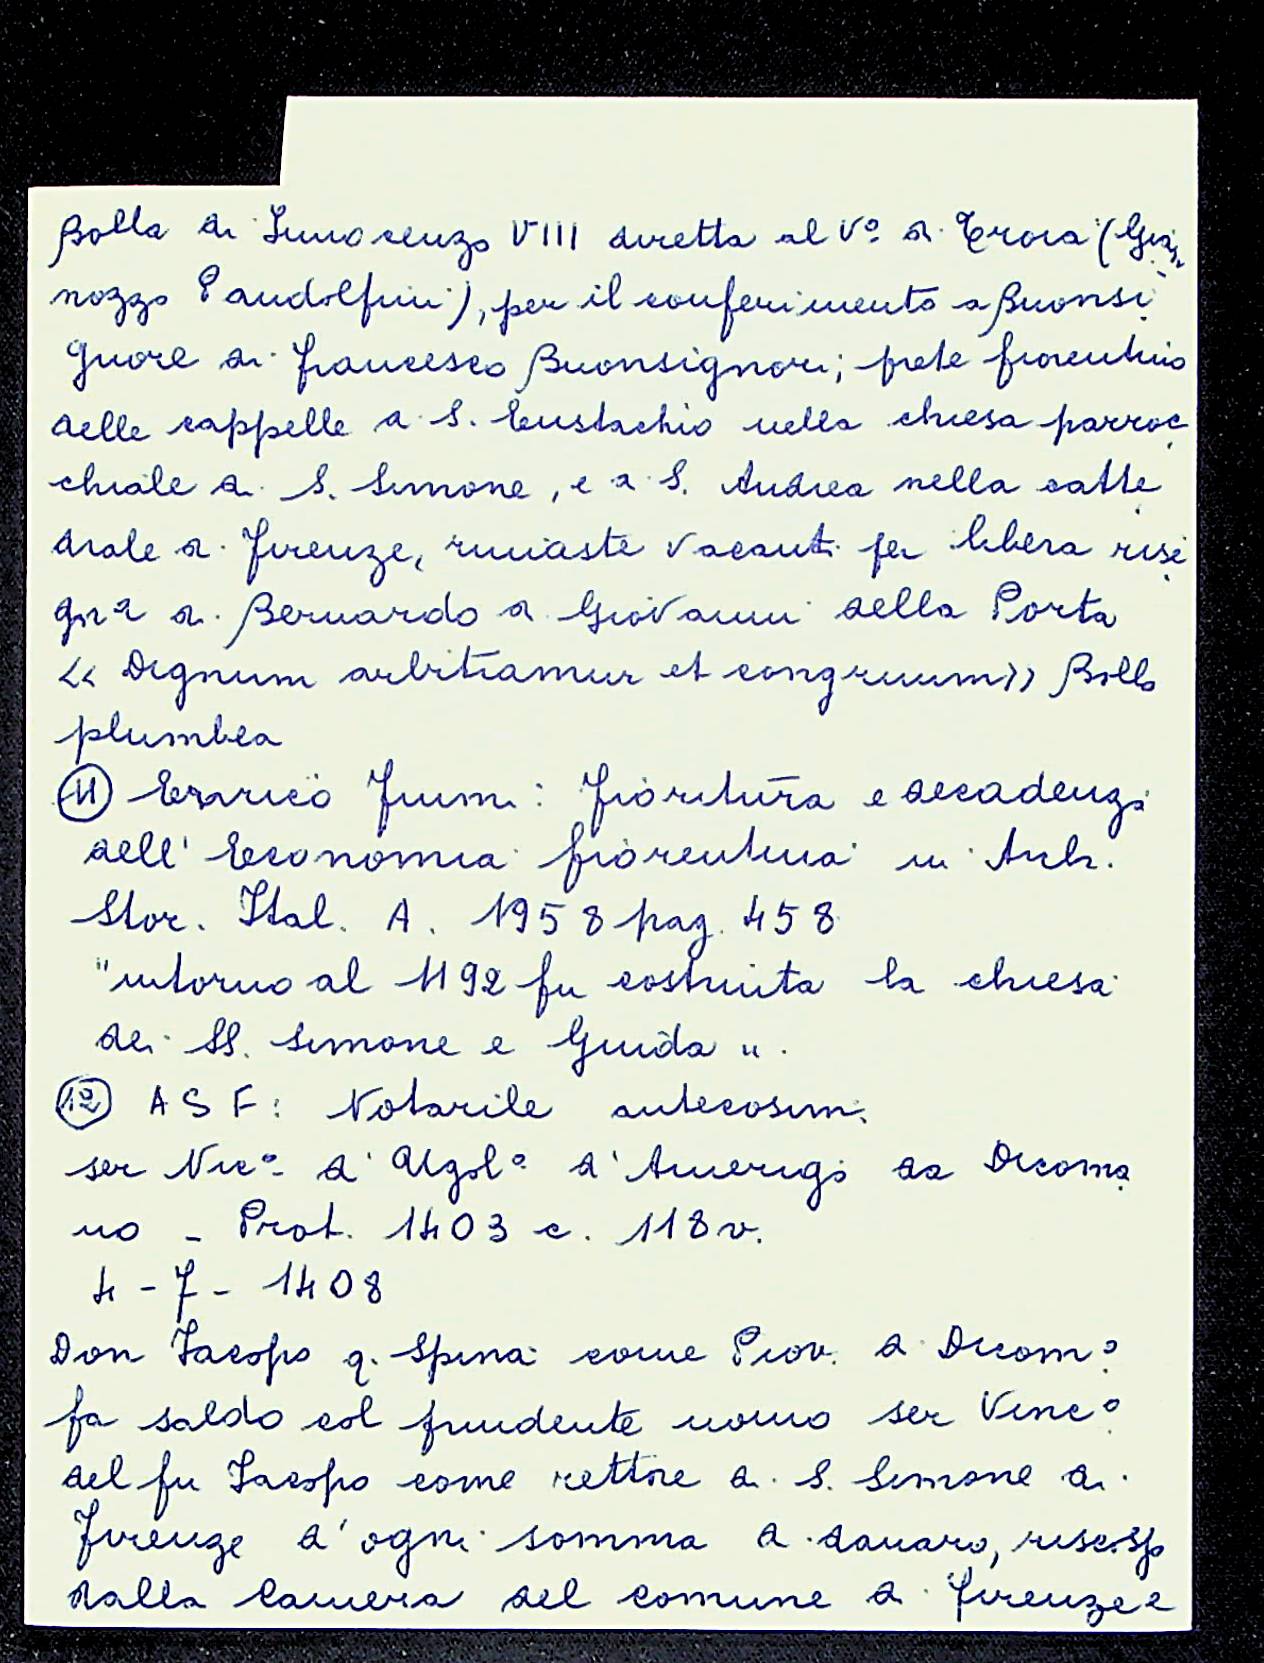 Bolla di Innocenzo VIII diretta al V.º di Troia (Gian
nozzo Pandolfini), per il conferimento a Buonsi
gnore di Francesco Buonsignori; prete fiorentino
delle cappelle di S. Eustachio nella chiesa parroc
chiale di S. Simone, e di S. Andrea nella catte
drale di Firenze, rimaste vacanti per libera rise
gna di Bernardo di Giovanni della Porta
<< Dignum arbitramur et congruum>> Bolla
plumbea
(11) Enrico Fiumi: Fioritura e decadenza
dell' Economia fiorentina in Arch.
Stor. Ital. A. 1958 pag. 458
"intorno al 1192 fu costruita la chiesa
dei SS. Simone e Giuda".
(12) ASF: Notarile antecosim.
ser Nic.º d' Ugol.º d'Amerigo da Dicoma
no - Prot. 1403 c. 118v.
4-7-1408
Don Iacopo q. Spina come Piov. di Dicom.º
fa saldo col prudente uomo ser Vinc.º
del fu Iacopo come rettore di S. Simone di
Firenze d'ogni somma di danaro, riscossa
dalla Camera del comune di Firenze e